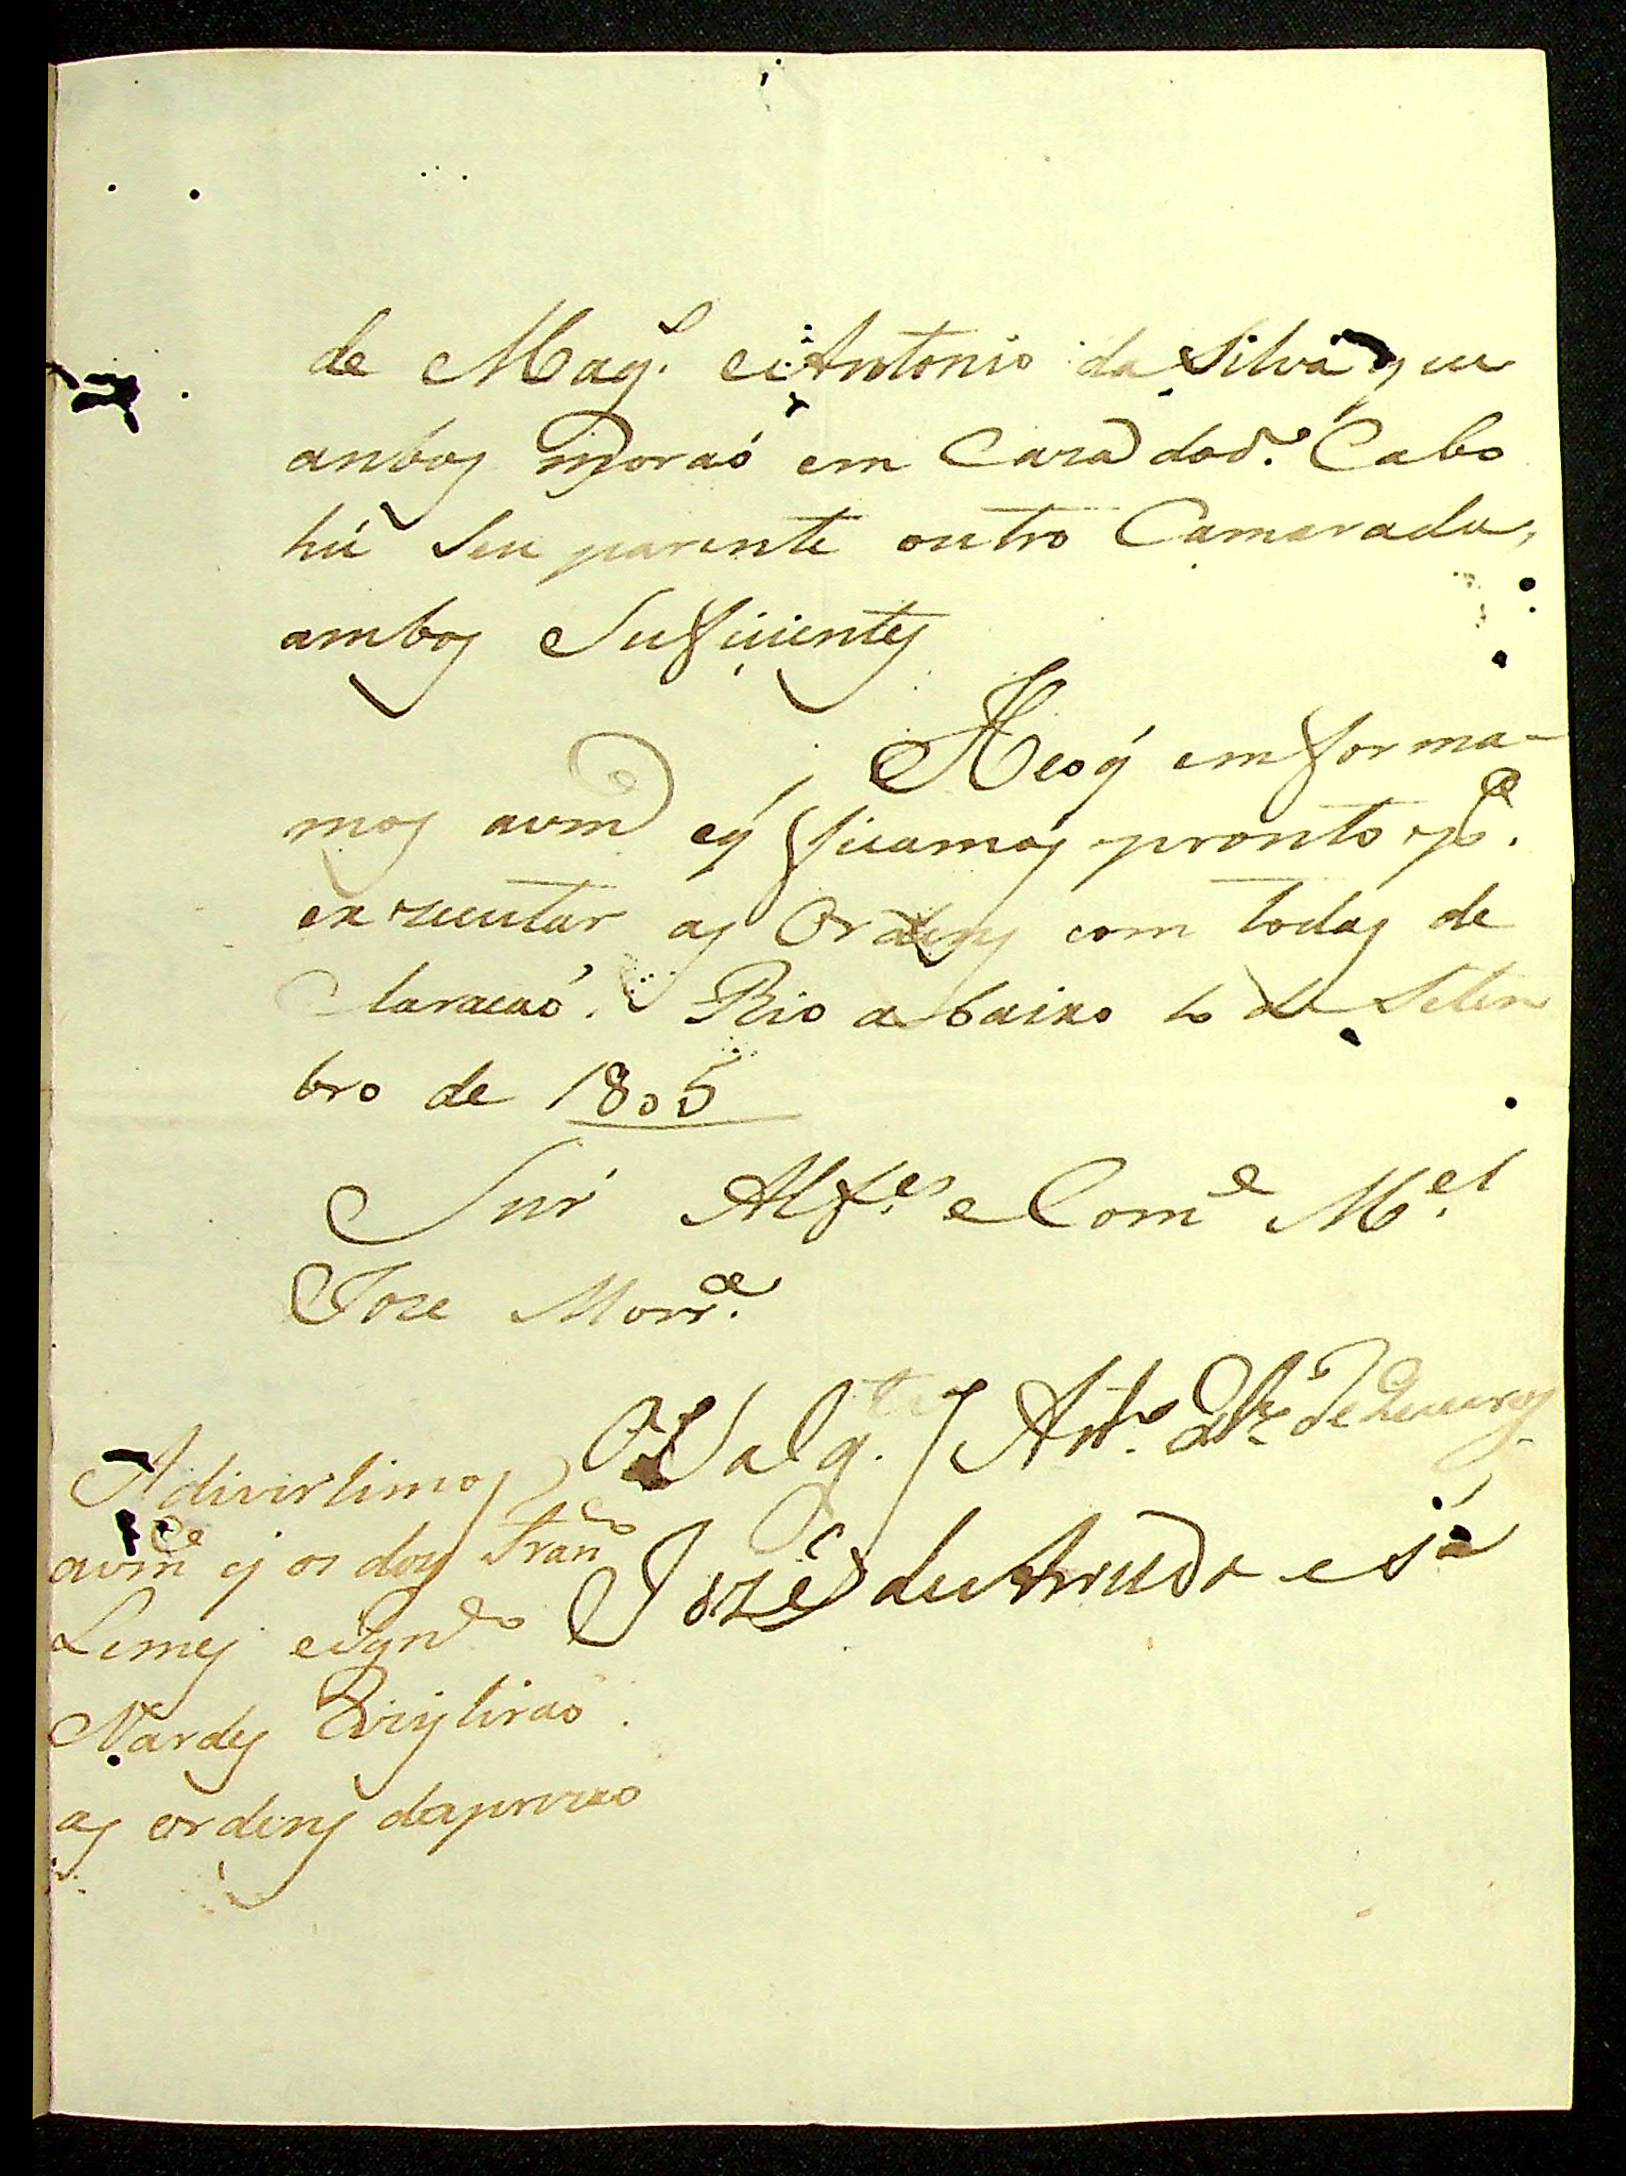 de Mag.s e Antonio da Silva que
anbos moraó em Caza dod.o Cabo
hú Seu parente outro Camarada,
ambos Suficientes
He oq̃ emforma-
mos avm eq̃ ficamos prontos p.a
exzecutar as Ordens com todas de
claracaó. Rio abaixo de Setem
bro de 1805
Snr Alf.es e Com.e M.el
Joze Morr.a
O Sarg.to Ant.o de
José de Arruda e S.a
Adivirtimos
avm.ce q̃ os dous Fran.co
Lemes e Ign.co
Nardes Rezistirao
as ordens daprizao